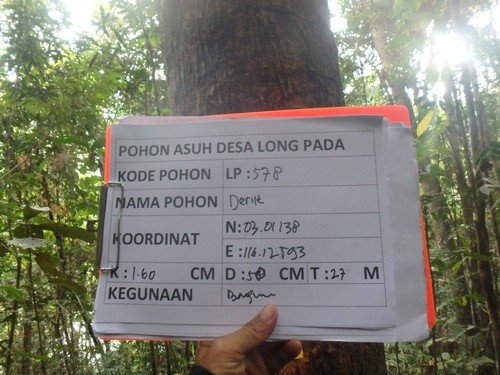 POHON ASUH DESA LONG PADA
KODE POHON LP : 578
NAMA POHON Derik
KOORDINAT N : 03.01138
E : 116.12893
K : 1.60 CM D : 50 CM T : 27 M
KEGUNAAN